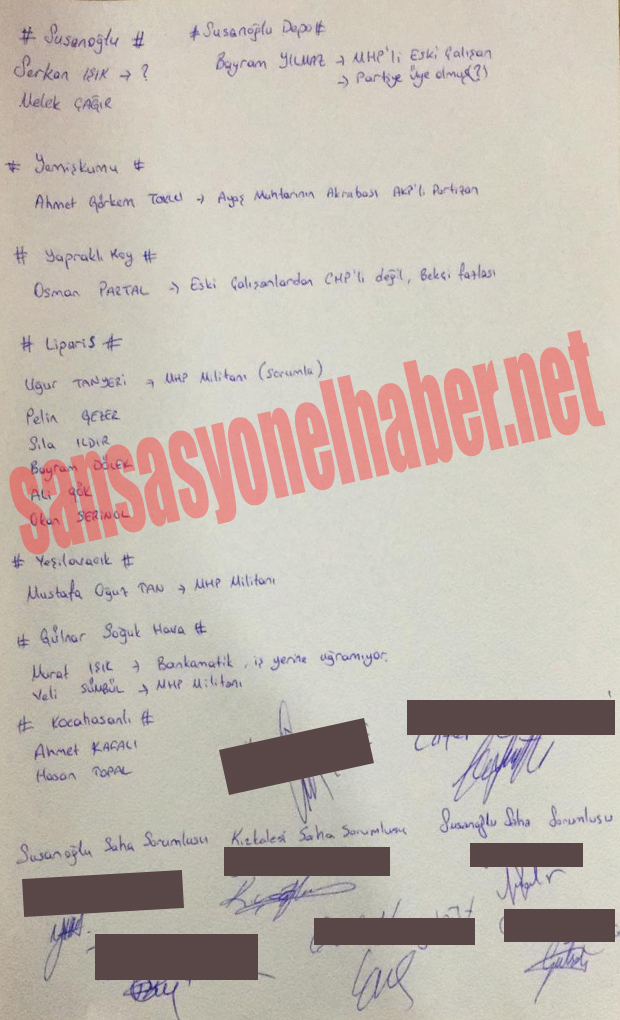 # Susanoğlu #
Serkan IŞIK → ?
Melek ÇAĞIR
# Susanoğlu Depo #
Bayram YILMAZ → MHP'li Eski Çalışan
→ Partiye üye olmuş(?)
# Yemişkumu #
Ahmet Görkem → Ayaş Muhtarının Akrabası AKP'li Partizan
# Yapraklı Koy #
Osman PARTAL → Eski Çalışanlardan CHP'li değil, Bekçi fazlası
# Liparis #
Uğur TANYERİ → MHP Militanı (sorumlu)
Pelin GEZER
Sıla ILDIR
Bayram DÖLEK
Ali GÖK
Okan SERİNOL
sansasyonelhaber.net
# Yeşilovacık #
Mustafa Oğuz TAN → MHP Militanı
# Gülnar Soğuk Hava #
Murat IŞIK → Bankamatik, iş yerine uğramıyor.
Veli SÜMBÜL → MHP Militanı
# Kocahasanlı #
Ahmet KAFALI
Hasan TOPAL
Susanoğlu Saha Sorumlusu
Kızkalesi Saha Sorumlusu
Susanoğlu Saha Sorumlusu